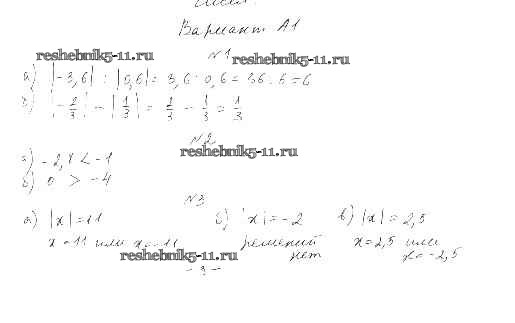 Вариант А1
№1
reshebnik5-11.ru reshebnik5-11.ru
а) |-3,6| : |0,6| = 3,6 : 0,6 = 36 : 6 = 6
б) |-2/3| - |1/3| = 2/3 - 1/3 = 1/3
№2
reshebnik5-11.ru
а) -2,4 < -1
б) 0 > -4
№3
а) |x| = 11 б) |x| = -2 в) |x| = 2,5
x = 11 или x = -11 решений x = 2,5 или
reshebnik5-11.ru нет x = -2,5
- 3 -